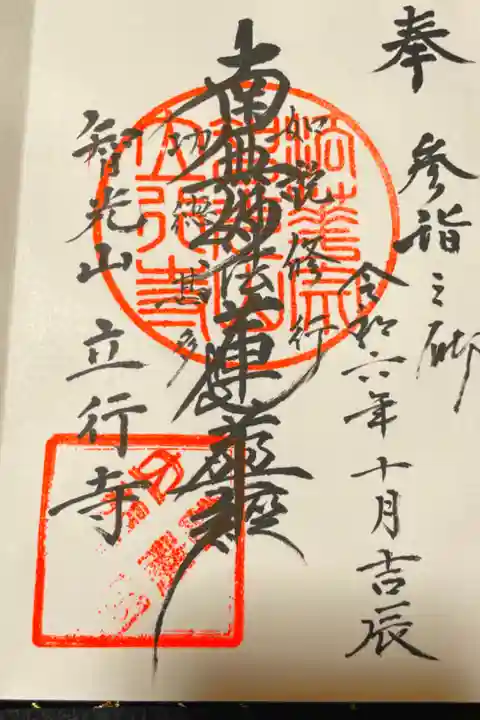 奉
参詣之砌
令和六年十月吉辰
如説修行
南無妙法蓮華経
功徳甚多
智光山 立行寺